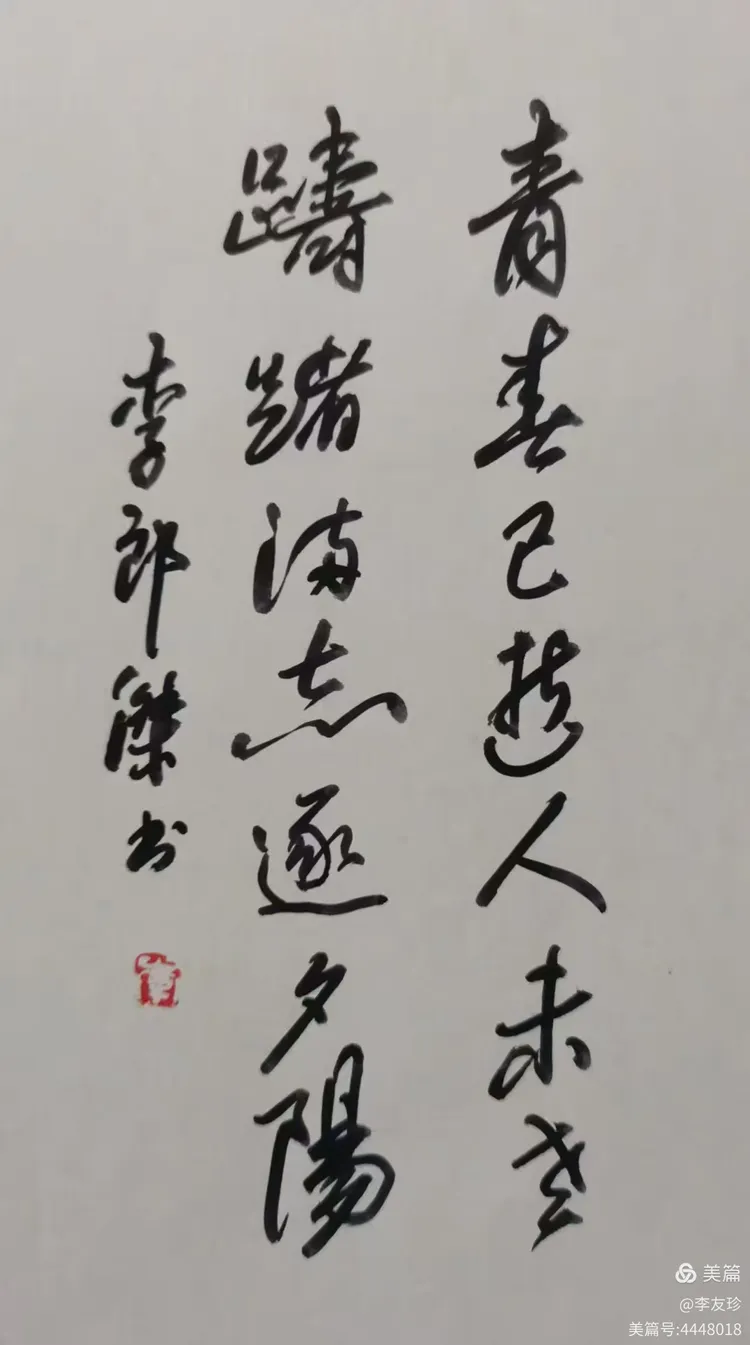 青春已逝人未老
躊躇满志逐夕陽
李郎傑书
美篇
@李友珍
美篇号:4448018